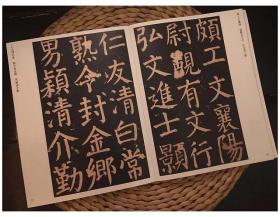 頗工文襄陽
尉覿有文行
弘文進士
仁友清白常
熟令封金鄉
男穎清介勤